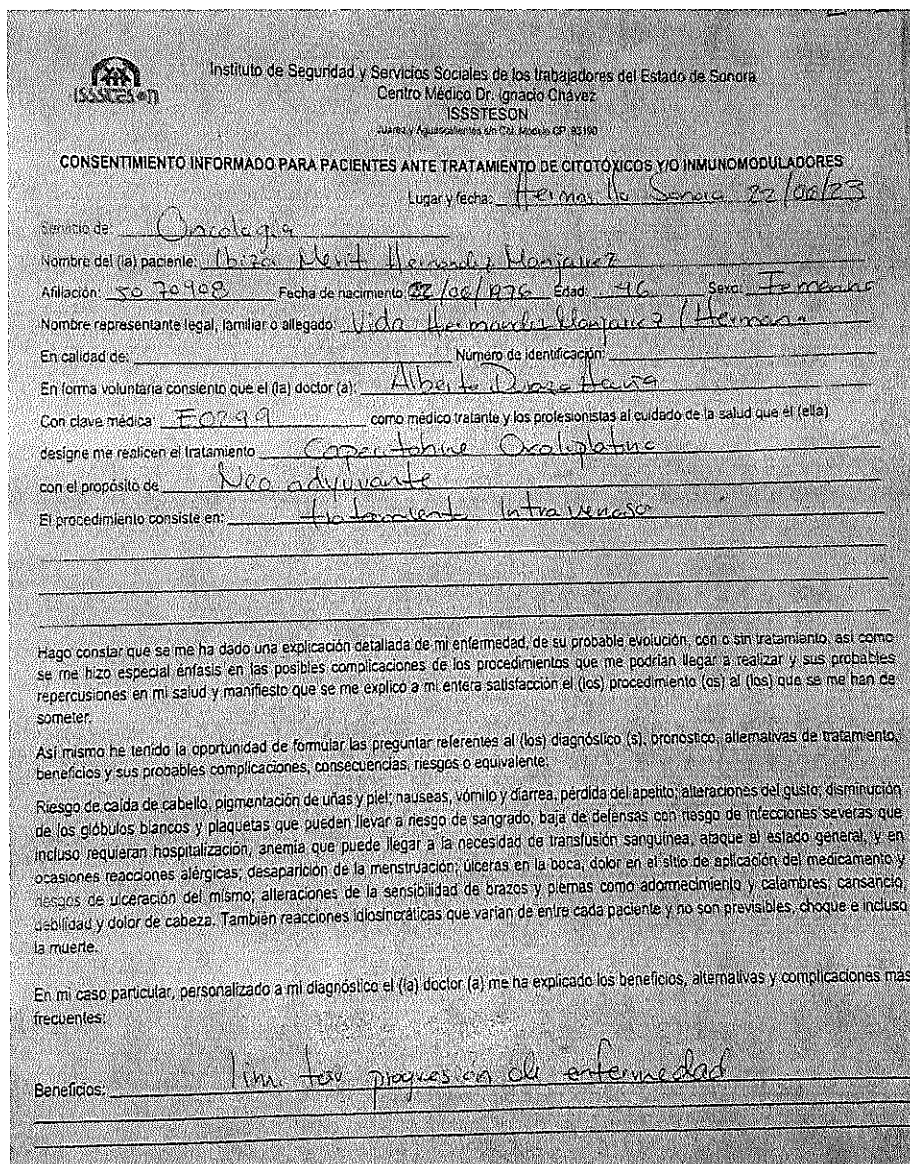 ISSSTESON
Instituto de Seguridad y Servicios Sociales de los trabajadores del Estado de Sonora
Centro Médico Dr. Ignacio Chávez
ISSSTESON
Juárez y Aguascalientes s/n Col. Modelo CP. 83190
CONSENTIMIENTO INFORMADO PARA PACIENTES ANTE TRATAMIENTO DE CITOTÓXICOS Y/O INMUNOMODULADORES
Lugar y fecha: Hermosillo Sonora 22/06/23
Servicio de: Oncología
Nombre del (la) paciente: Merit Hernandez Manjarrez
Afiliación: 5070908 Fecha de nacimiento 22/06/1976 Edad: 46 Sexo: Femenino
Nombre representante legal, familiar o allegado: Vida Hernandez Manjarrez / Hermana
En calidad de: Número de identificación:
En forma voluntaria consiento que el (la) doctor (a): Alberto
Con clave médica como médico tratante y los profesionistas al cuidado de la salud que él (ella)
designe me realicen el tratamiento Oxaliplatino
con el propósito de Neo adyuvante
El procedimiento consiste en: tratamiento Intravenoso
Hago constar que se me ha dado una explicación detallada de mi enfermedad, de su probable evolución, con o sin tratamiento, así como
se me hizo especial énfasis en las posibles complicaciones de los procedimientos que me podrían llegar a realizar y sus probables
repercusiones en mi salud y manifiesto que se me explicó a mi entera satisfacción el (los) procedimiento (os) al (los) que se me han de
someter.
Así mismo he tenido la oportunidad de formular las preguntar referentes al (los) diagnóstico (s), pronostico, alternativas de tratamiento,
beneficios y sus probables complicaciones, consecuencias, riesgos o equivalente:
Riesgo de caída de cabello, pigmentación de uñas y piel; nauseas, vómito y diarrea, pérdida del apetito; alteraciones del gusto; disminución
de los glóbulos blancos y plaquetas que pueden llevar a riesgo de sangrado, baja de defensas con riesgo de infecciones severas que
incluso requieran hospitalización, anemia que puede llegar a la necesidad de transfusión sanguínea, ataque al estado general, y en
ocasiones reacciones alérgicas; desaparición de la menstruación; úlceras en la boca; dolor en el sitio de aplicación del medicamento y
riesgos de ulceración del mismo; alteraciones de la sensibilidad de brazos y piernas como adormecimiento y calambres; cansancio,
debilidad y dolor de cabeza. También reacciones idiosincráticas que varían de entre cada paciente y no son previsibles, choque e incluso
la muerte.
En mi caso particular, personalizado a mi diagnóstico el (la) doctor (a) me ha explicado los beneficios, alternativas y complicaciones más
frecuentes:
Beneficios: limitar progresión de enfermedad